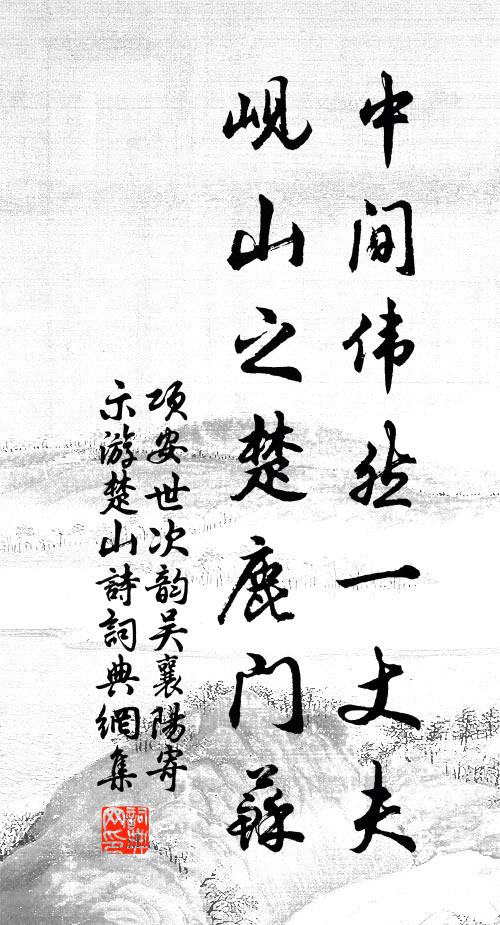 中间伟然一丈夫
岘山之楚鹿门蘇
项安世次韵吴襄陽寄
示游楚山詩詞典網集
詞典网印